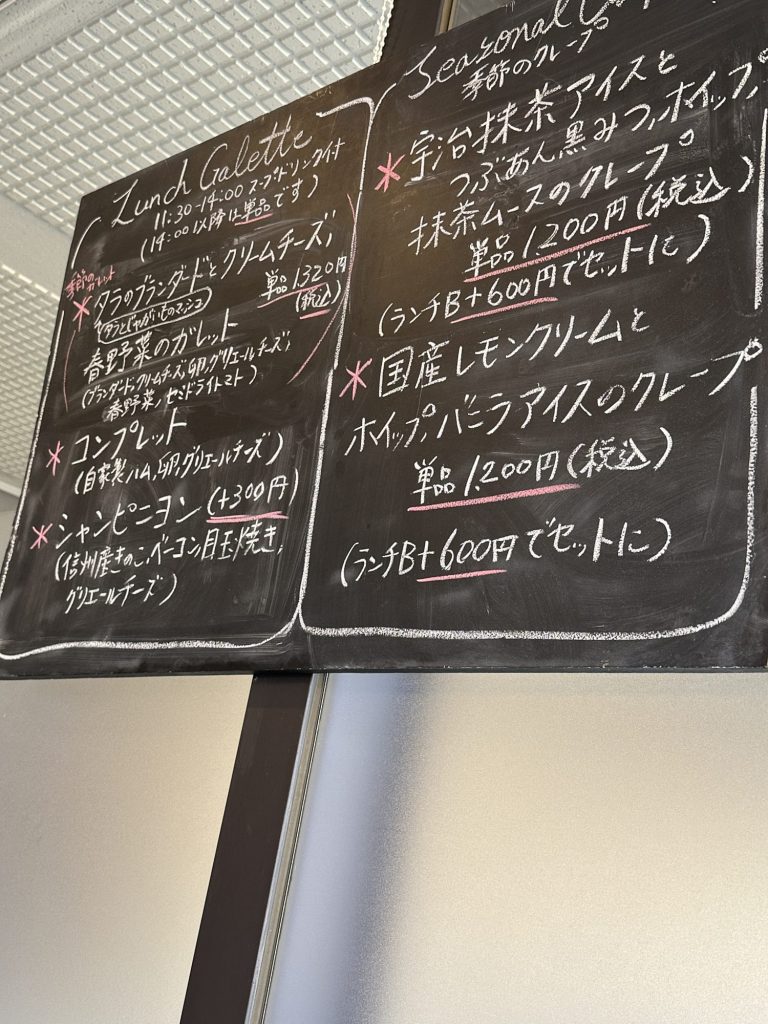 Lunch Galette
11:30-14:00 スープ・ドリンク付
(14:00以降は単品です)
季節のガレット
* タラのブランダードとクリームチーズ,
タラとじゃがいものマッシュ
単品 1,320円
(税込)
春野菜のガレット
(ブランダード,クリームチーズ,卵,グリエールチーズ,
春野菜,セミドライトマト)
* コンプレット
(自家製ハム,卵,グリエールチーズ)
* シャンピニヨン (+300円)
(信州産きのこ,ベーコン,目玉焼き,
グリエールチーズ)
Seasonal
季節のクレープ
* 宇治抹茶アイスと
つぶあん,黒みつ,ホイップ,
抹茶ムースのクレープ
単品 1200円(税込)
(ランチB+600円でセットに)
* 国産レモンクリームと
ホイップ,バニラアイスのクレープ
単品 1,200円(税込)
(ランチB+600円でセットに)